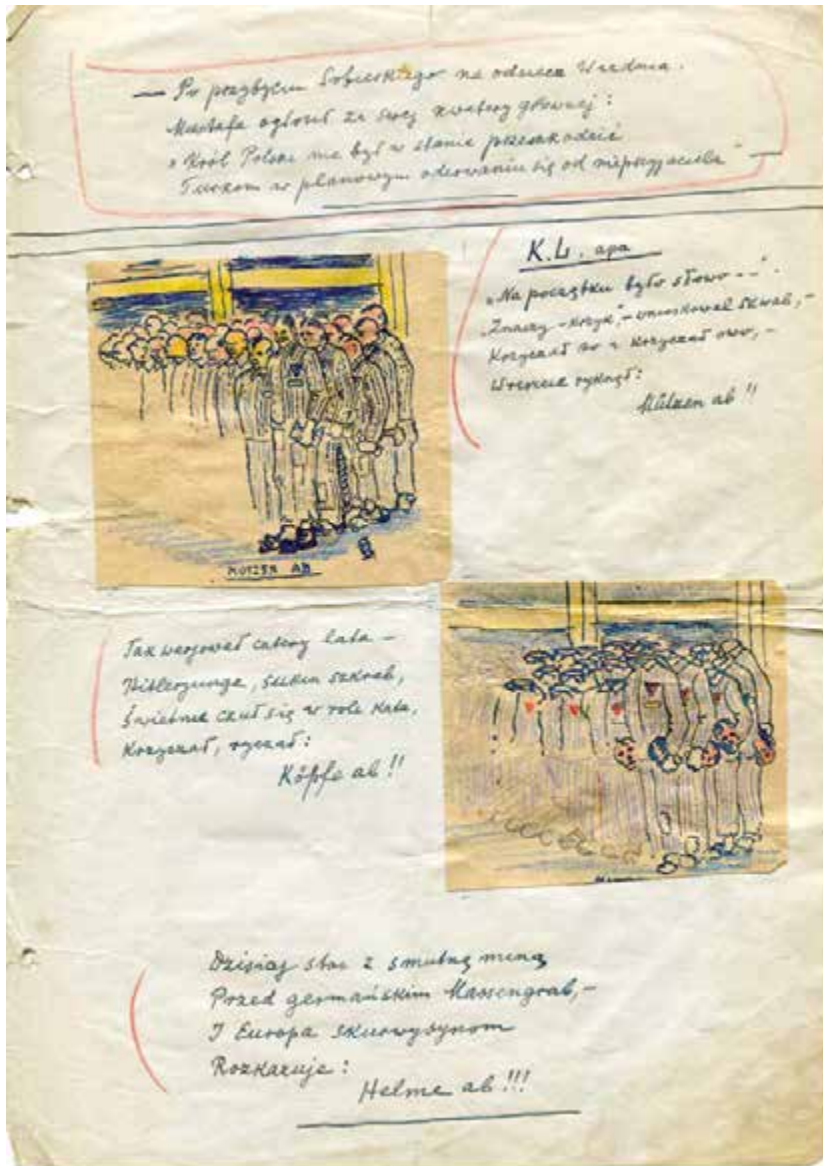 — Po przybyciu Sobieskiego na odsiecz Wiednia.
Mustafa ogłosił ze swej kwatery głównej:
"Król Polski nie był w stanie przeszkodzić
Turkom w planowym oderwaniu się od nieprzyjaciela" —
K.L. apa
"Na początku było słowo --".
"Znaczy – krzyk", – wnioskował szwab, –
Krzyczał to i krzyczał owo, –
Wreszcie ryknął:
Mützen ab!!
MÜTZEN AB
Tak wariował cztery lata –
Hitlerjunge, sukin szkrab,
Świetnie czuł się w role kata,
Krzyczał, ryczał:
Köpfe ab!!
Dzisiaj stoi z smutną miną
Przed germańskim Massengrab, –
I Europa skurwysynom
Rozkazuje:
Helme ab!!!